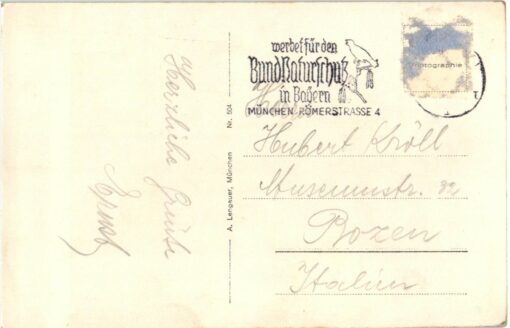 Herzliche Grüße
Ernst
A. Lengauer, München Nr. 504
werbet für den
Bund Naturschutz
in Bayern
MÜNCHEN RÖMERSTRASSE 4
Photographie
Hubert Kröll
Museumstr. 32
Bozen
Italien